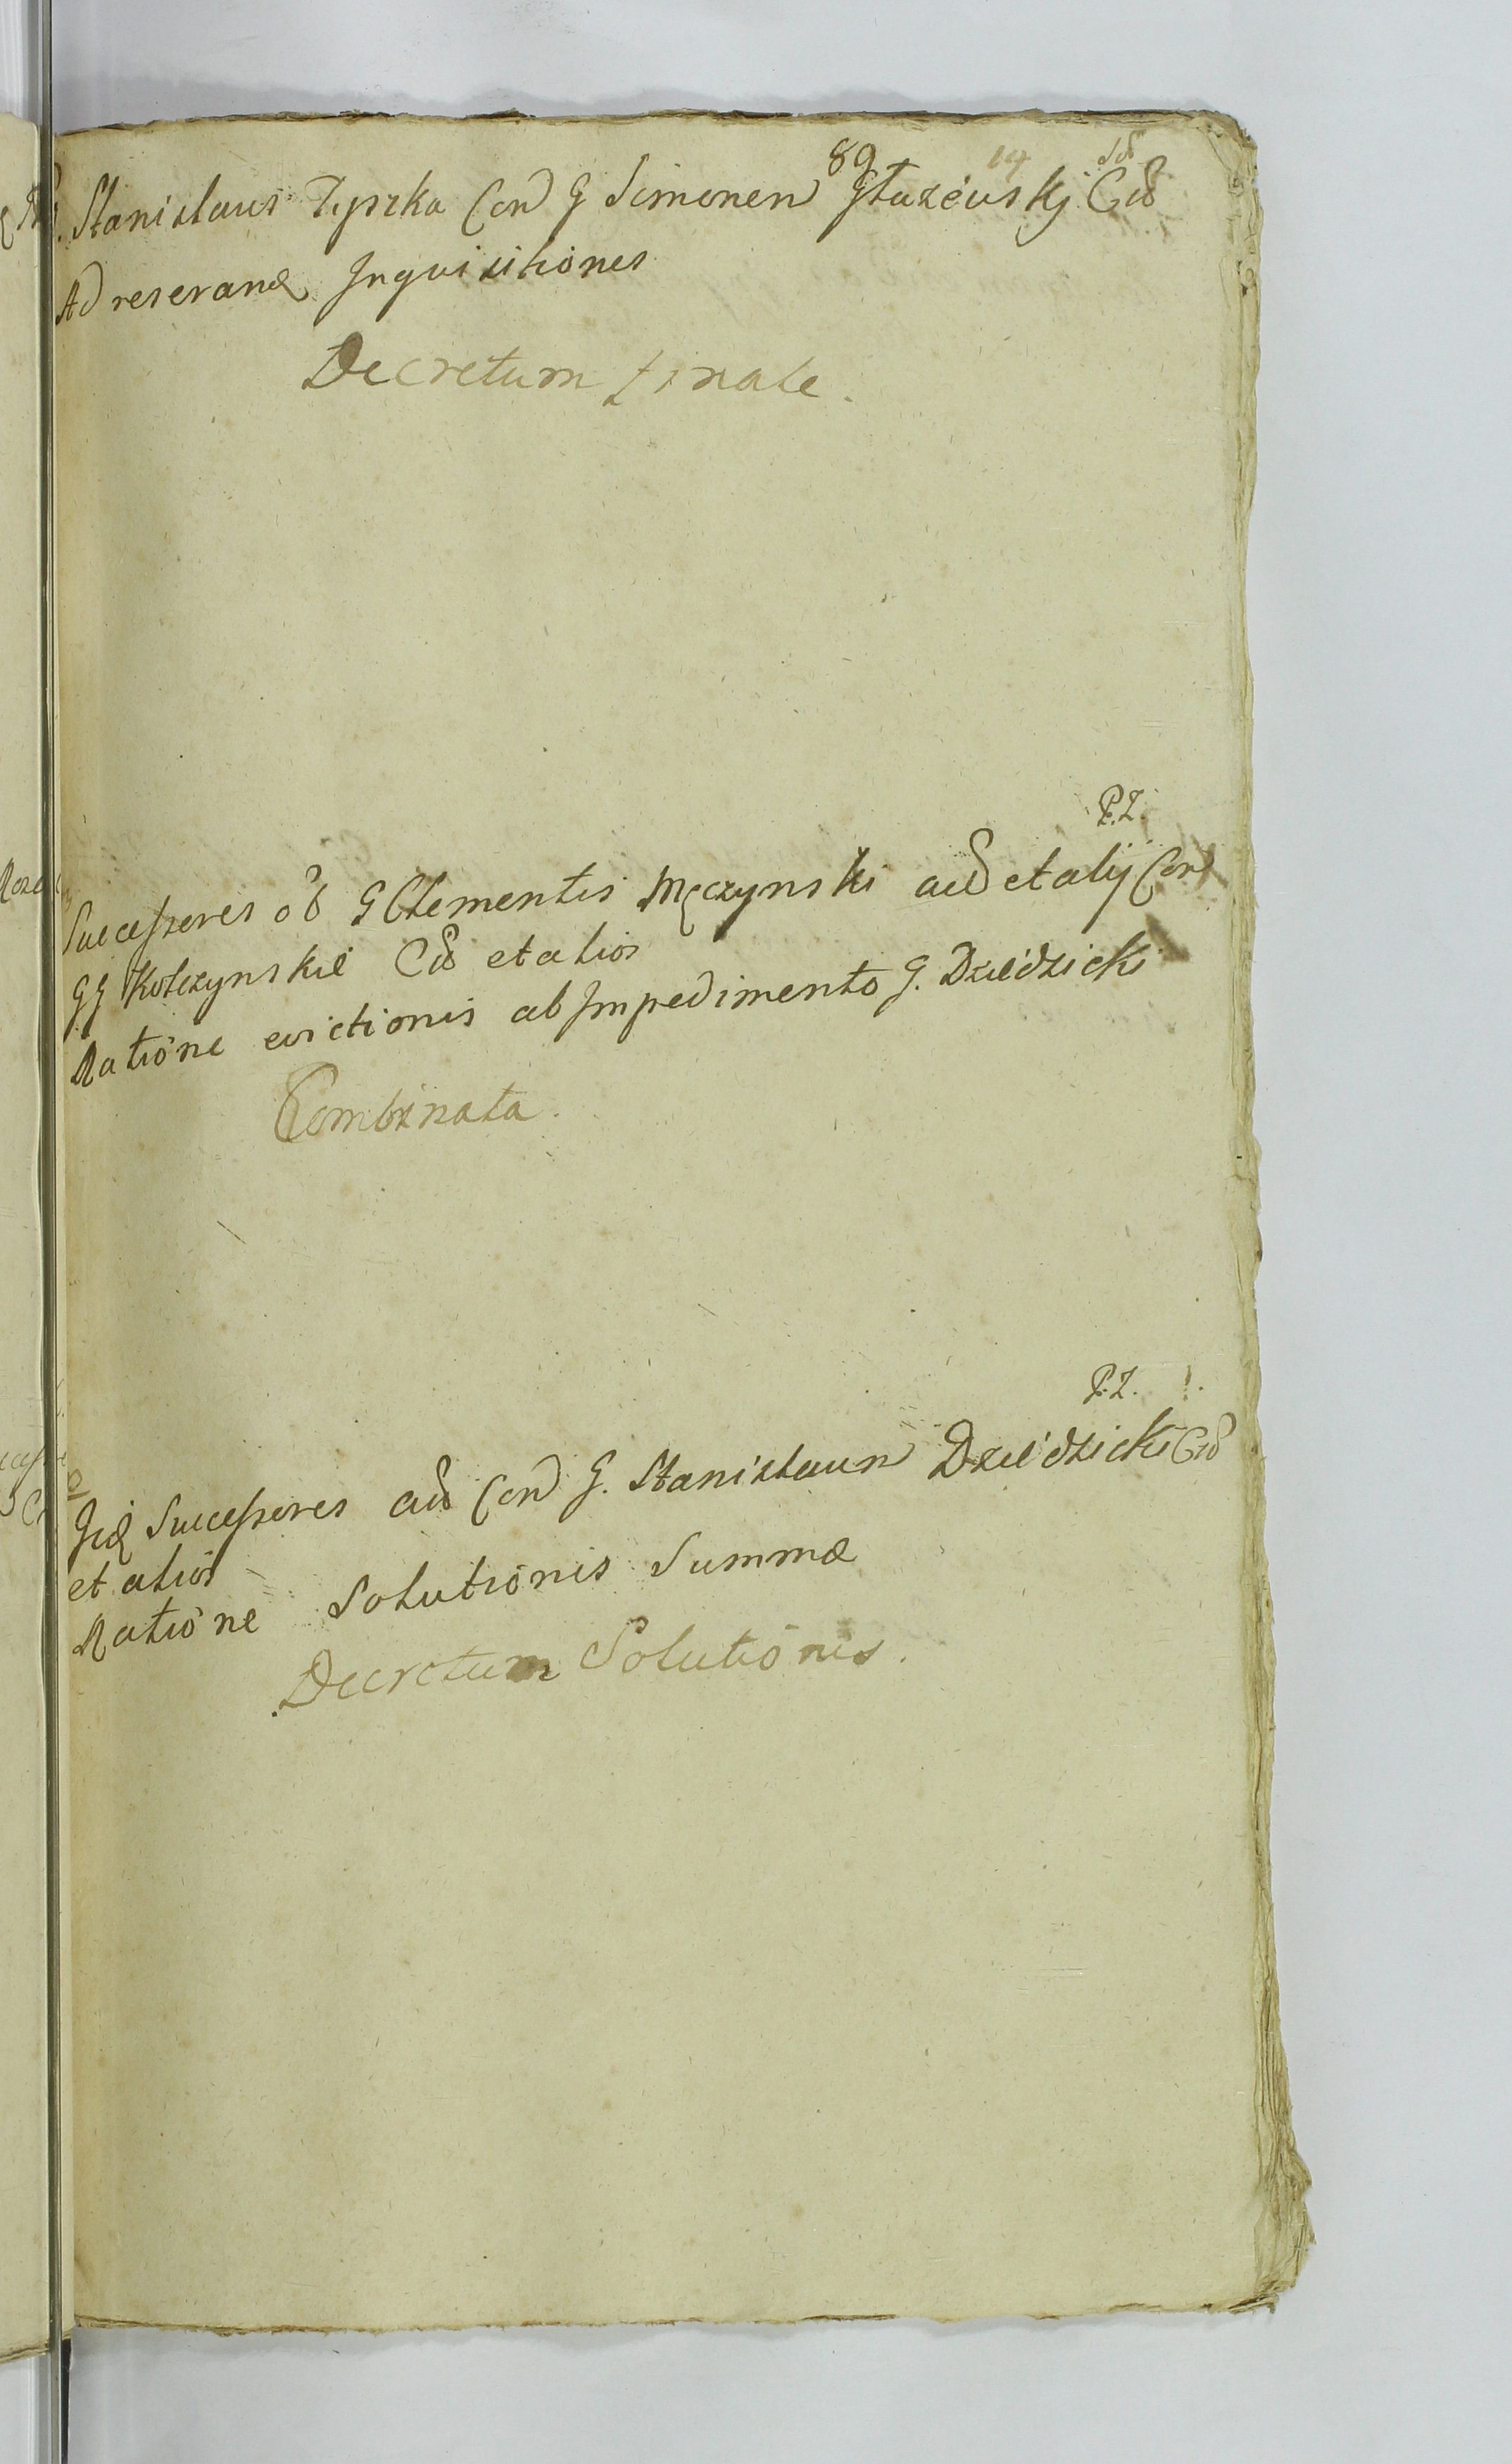 89 14
G. Stanislaus Tyszka Con G Simonen Głażewskj
Ad reserand Inquisitiones
Decretum finale.
P.Z.
Successores G Clementis Męczynski et alij Con
GG Kołczynskie et alios
Ratione evictionis ab Impedimento G. Dziedzicki
Combinata.
P.Z.
Successores Con G. Stanislaum Dziedzicki
et alios
Ratione Solutionis Summæ
Decretum Solutionis.